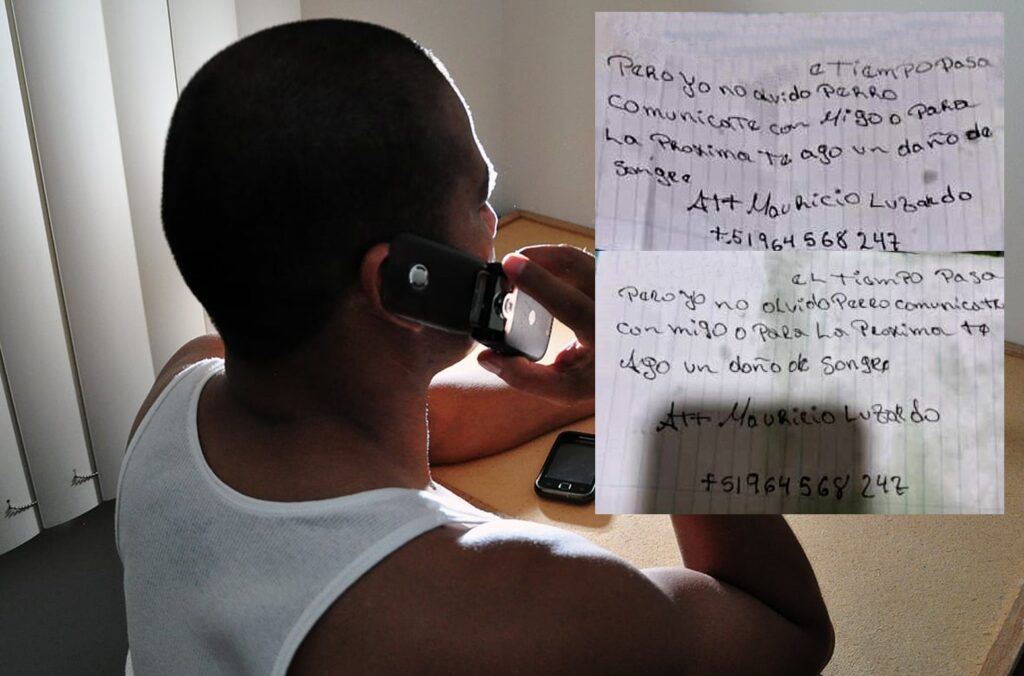 e Tiempo Pasa
Pero yo no olvido Perro
comunicate con Migo o Para
La Proxima te ago un daño de
Sangre
Att Mauricio Luzardo
+51964568247
eL Tiempo Pasa
Pero yo no olvido Perro comunicate
con migo o Para La Proxima te
Ago un daño de Sangre
Att Mauricio Luzardo
+51964568247